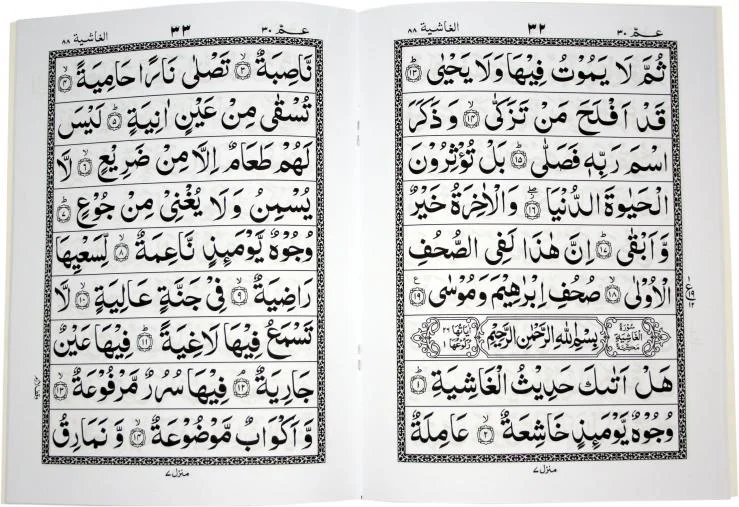 عمّ ٣٠
٣٢
الغاشية ٨٨
ثُمَّ لَا يَمُوْتُ فِيْهَا وَلَا يَحْيٰى ۝١٣
قَدْ اَفْلَحَ مَنْ تَزَكّٰى ۝١٤ وَ ذَكَرَ
اسْمَ رَبِّهٖ فَصَلّٰى ۝١٥ بَلْ تُؤْثِرُوْنَ
الْحَيٰوةَ الدُّنْيَا ۝١٦ وَالْاٰخِرَةُ خَيْرٌ
وَّاَبْقٰى ۝١٧ اِنَّ هٰذَا لَفِى الصُّحُفِ
الْاُوْلٰى ۝١٨ صُحُفِ اِبْرٰهِيْمَ وَمُوْسٰى ۝١٩
ع ١٩ ١٢
سُوْرَةُ الْغَاشِيَةِ مَكِّيَّةٌ بِسْمِ اللّٰهِ الرَّحْمٰنِ الرَّحِيْمِ اٰيَاتُهَا ٢٦ رُكُوْعُهَا ١
هَلْ اَتٰىكَ حَدِيْثُ الْغَاشِيَةِ ۝١
وُجُوْهٌ يَّوْمَئِذٍ خَاشِعَةٌ ۝٢ عَامِلَةٌ
منزل ٧
عمّ ٣٠
٣٣
الغاشية ٨٨
نَّاصِبَةٌ ۝٣ تَصْلٰى نَارًا حَامِيَةً ۝٤
تُسْقٰى مِنْ عَيْنٍ اٰنِيَةٍ ۝٥ لَيْسَ
لَهُمْ طَعَامٌ اِلَّا مِنْ ضَرِيْعٍ ۝٦ لَّا
يُسْمِنُ وَلَا يُغْنِىْ مِنْ جُوْعٍ ۝٧
وُجُوْهٌ يَّوْمَئِذٍ نَّاعِمَةٌ ۝٨ لِّسَعْيِهَا
رَاضِيَةٌ ۝٩ فِىْ جَنَّةٍ عَالِيَةٍ ۝١٠ لَّا
تَسْمَعُ فِيْهَا لَاغِيَةً ۝١١ فِيْهَا عَيْنٌ
جَارِيَةٌ ۝١٢ فِيْهَا سُرُرٌ مَّرْفُوْعَةٌ ۝١٣
وَّ اَكْوَابٌ مَّوْضُوْعَةٌ ۝١٤ وَّ نَمَارِقُ
منزل ٧